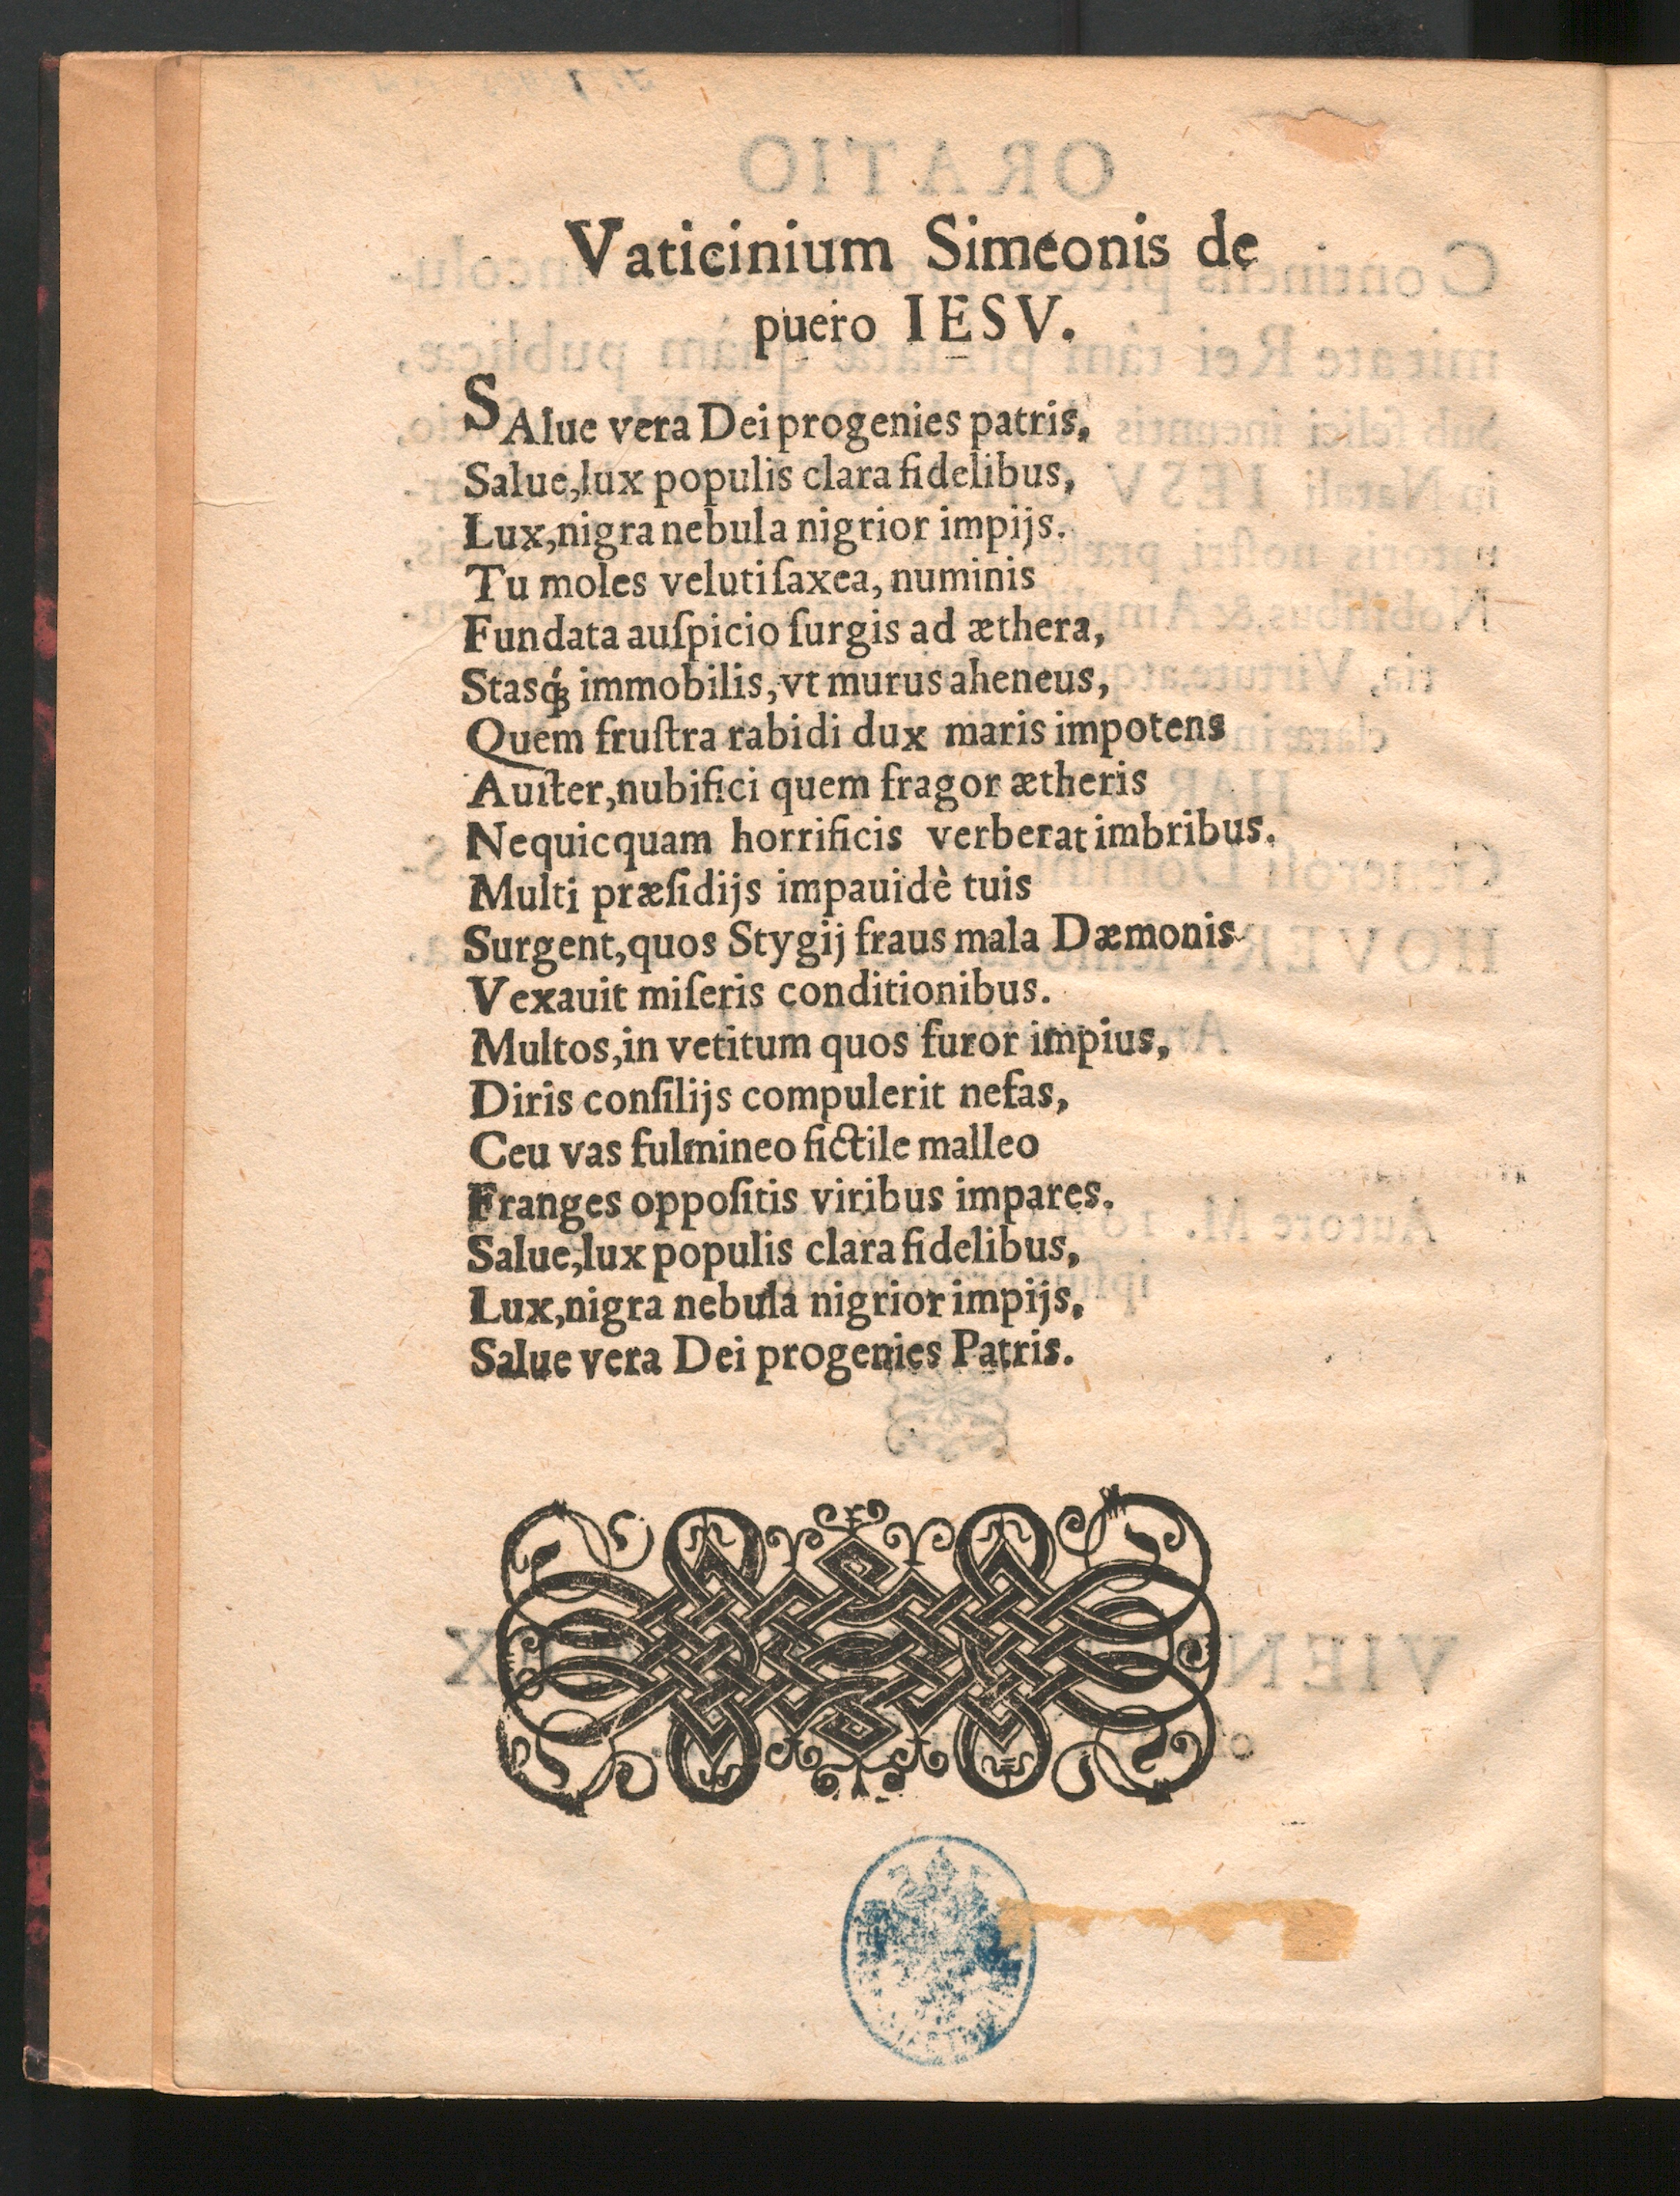 Vaticinium Simeonis de
puero IESV.
SAlue vera Dei progenies patris,
Salue, lux populis clara fidelibus,
Lux, nigra nebula nigrior impijs.
Tu moles veluti ſaxea, numinis
Fundata auſpicio ſurgis ad æthera,
Stasq́ꝫ immobilis, vt murus aheneus,
Quem fruſtra rabidi dux maris impotens
Auſter, nubifici quem fragor ætheris
Nequicquam horrificis verberat imbribus.
Multi præſidijs impauidè tuis
Surgent, quos Stygij fraus mala Dæmonis
Vexauit miſeris conditionibus.
Multos, in vetitum quos furor impius,
Diris conſilijs compulerit nefas,
Ceu vas fulmineo fictile malleo
Franges oppoſitis viribus impares.
Salue, lux populis clara fidelibus,
Lux, nigra nebula nigrior impijs,
Salue vera Dei progenies Patris.